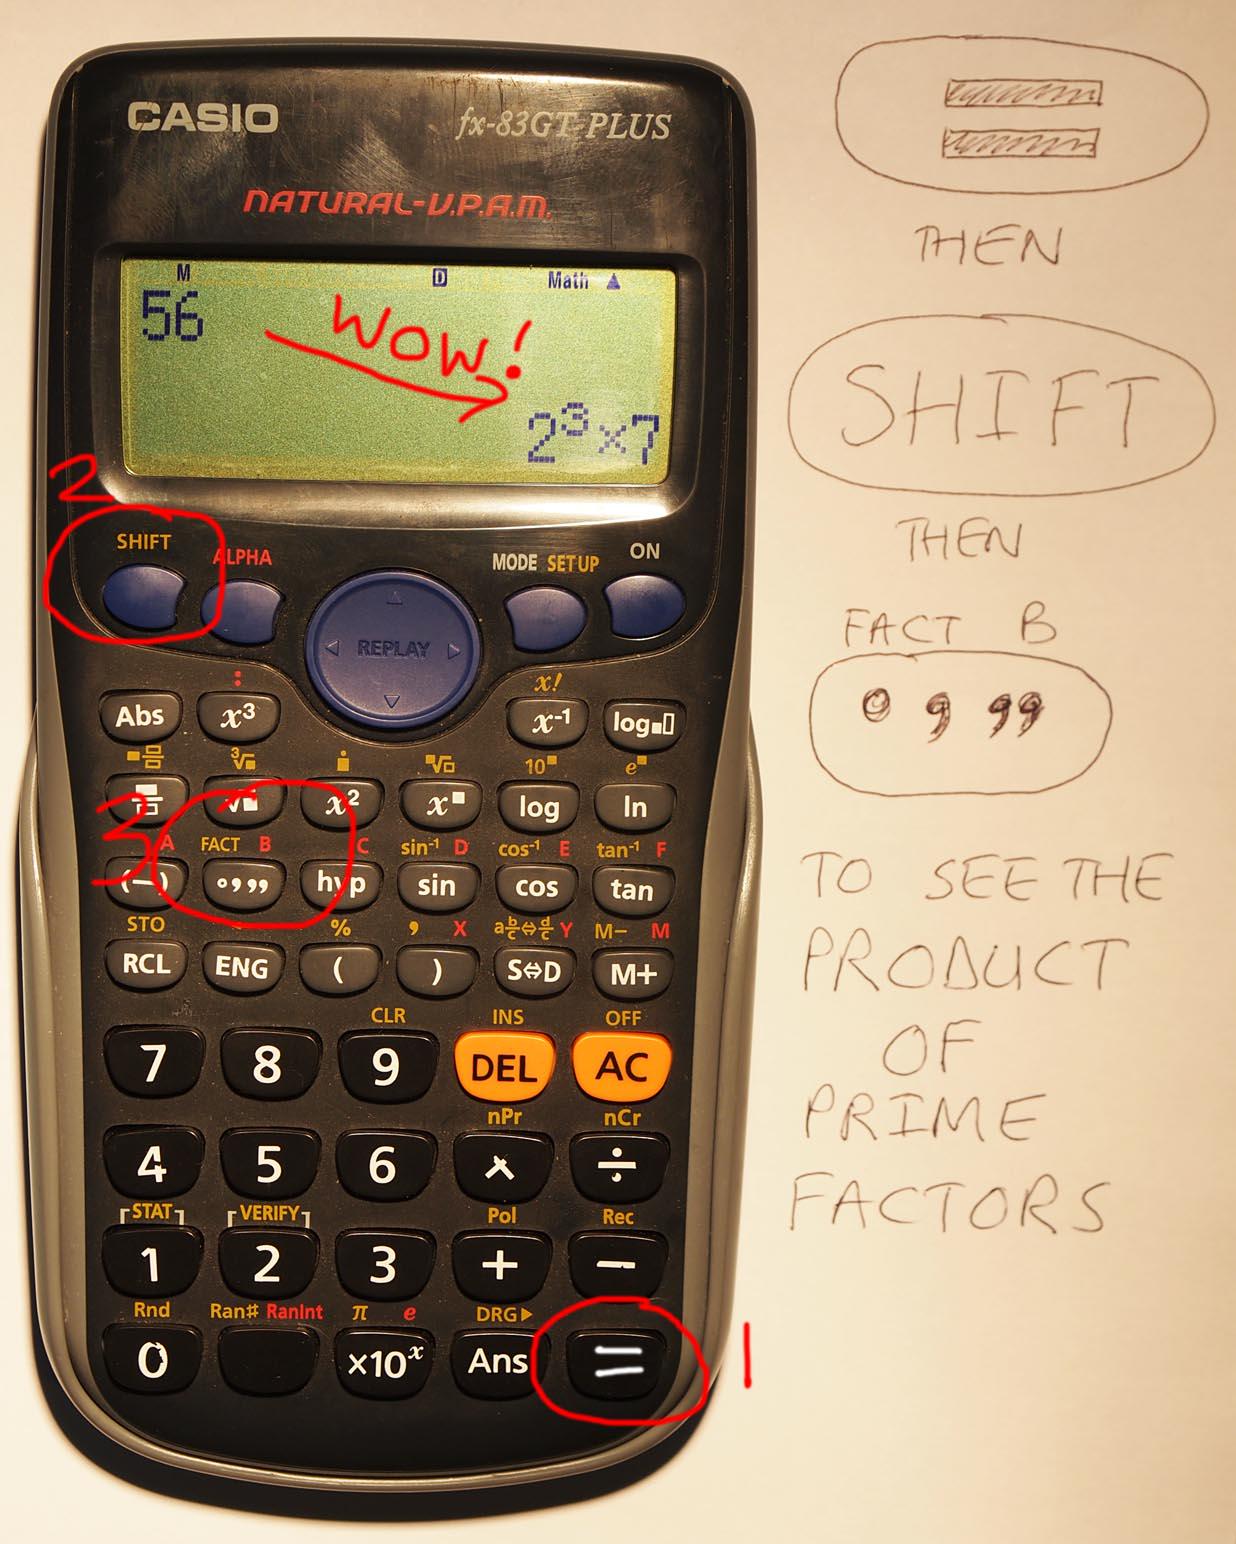 CASIO
fx-83GT PLUS
NATURAL-V.P.A.M.
M D Math ▲
56
WOW!
2³×7
2
SHIFT ALPHA MODE SETUP ON
REPLAY
: x!
Abs x³ x⁻¹ log
³√ 10 e
√ x² x log ln
3
A FACT B C sin⁻¹ D cos⁻¹ E tan⁻¹ F
(−) °,,, hyp sin cos tan
STO ← % , X a b/c⇔d/c Y M− M
RCL ENG ( ) S⇔D M+
CLR INS OFF
7 8 9 DEL AC
nPr nCr
4 5 6 × ÷
STAT VERIFY Pol Rec
1 2 3 + −
Rnd Ran# RanInt π e DRG▶
0 ×10ˣ Ans =
1
=
THEN
SHIFT
THEN
FACT B
° , ,,
TO SEE THE
PRODUCT
OF
PRIME
FACTORS